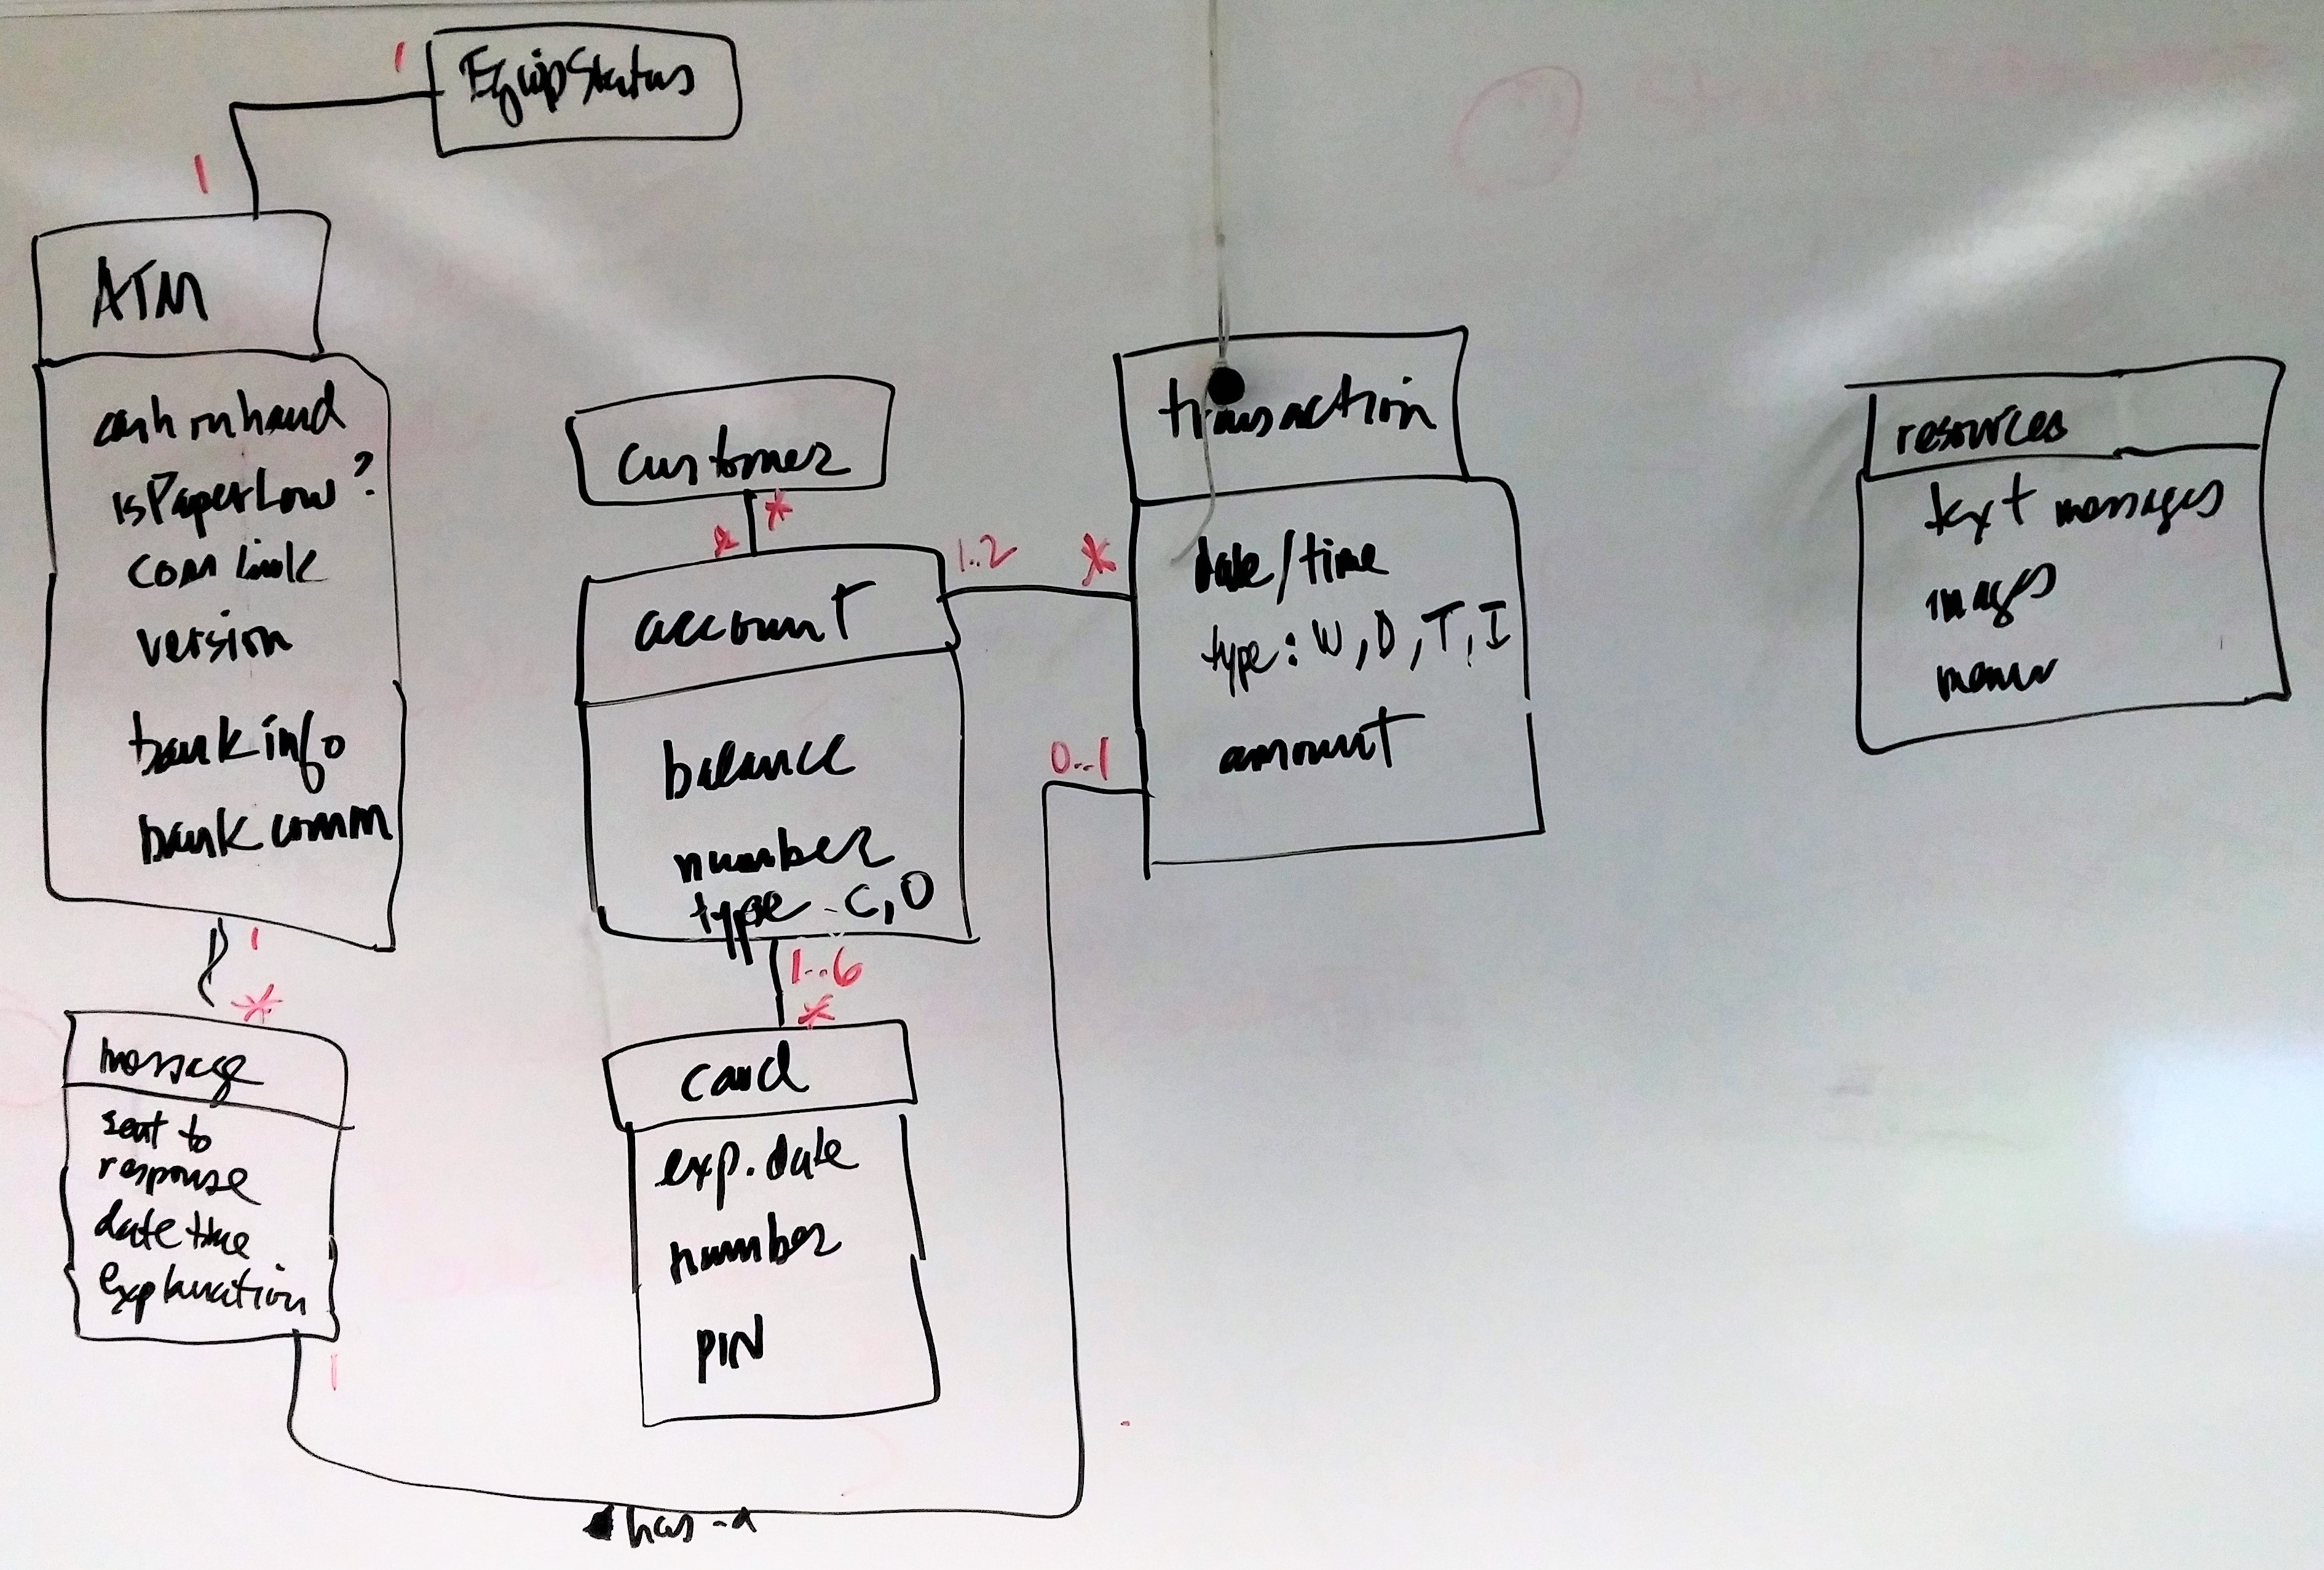 1
EquipStatus
1
ATM
cash on hand
isPaperLow?
com link
version
bank info
bank comm
1
*
message
sent to
response
date time
explanation
1
customer
*
*
account
1..2
*
balance
number
type - C, D
1..6
*
card
exp. date
number
PIN
transaction
date/time
type: W, D, T, I
amount
0..1
has-a
resources
text messages
images
menu